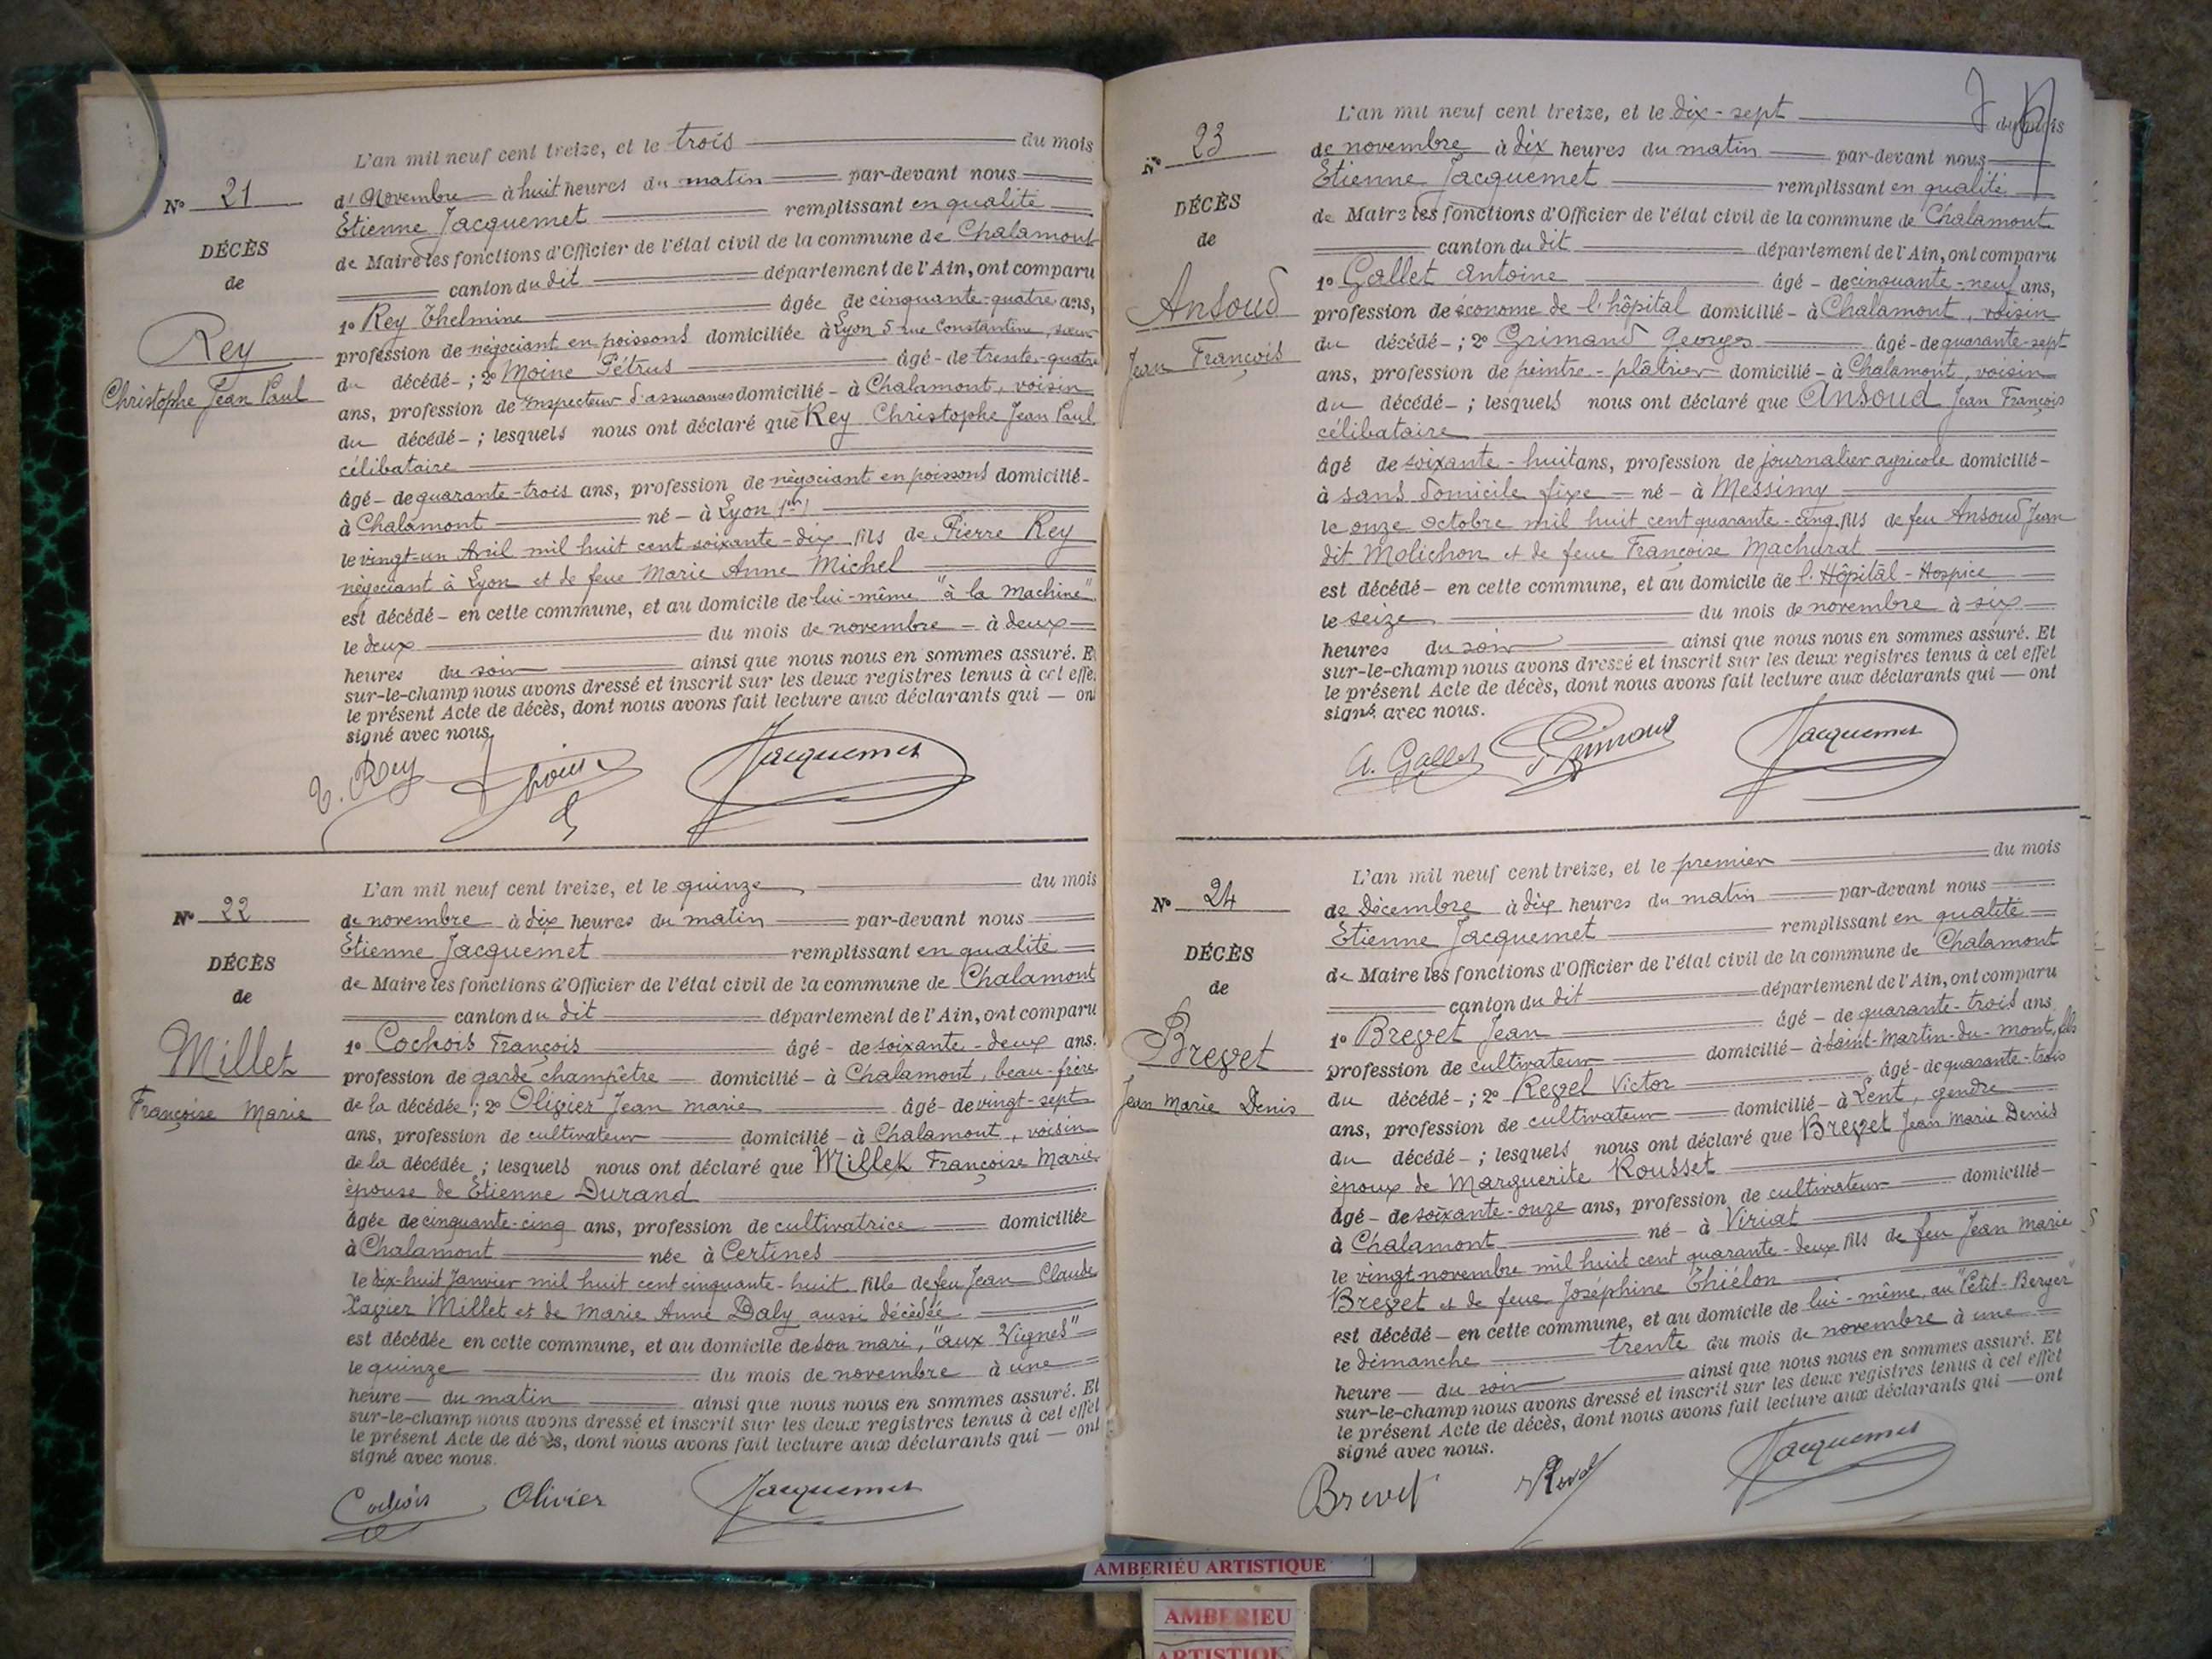 L'an mil neuf cent treize, et le trois du mois
d'Novembre à huit heures du matin par-devant nous
Etienne Jacquemet remplissant en qualité
de Maire les fonctions d'Officier de l'état civil de la commune de Chalamont
canton du dit département de l'Ain, ont comparu
1° Rey Thelmine âgée de cinquante-quatre ans,
profession de négociant en poissons domiciliée à Lyon 5 rue Constantine, sœur
du décédé - ; 2° Moine Pétrus âgé - de trente-quatre
ans, profession de Inspecteur d'assurances domicilié - à Chalamont, voisin
du décédé - ; lesquels nous ont déclaré que Rey Christophe Jean Paul
célibataire
âgé - de quarante-trois ans, profession de négociant en poissons domicilié -
à Chalamont né - à Lyon
le vingt-un Avril mil huit cent soixante-dix fils de Pierre Rey
négociant à Lyon et de feue Marie Anne Michel
est décédé - en cette commune, et au domicile de lui-même "à la machine"
le deux du mois de novembre - à deux
heures du soir ainsi que nous nous en sommes assuré. E
sur-le-champ nous avons dressé et inscrit sur les deux registres tenus à cet effe
le présent Acte de décès, dont nous avons fait lecture aux déclarants qui - ont
signé avec nous.
N° 21
DÉCÈS
de
Rey
Christophe Jean Paul
T. Rey Jacquemet
L'an mil neuf cent treize, et le quinze du mois
de novembre à dix heures du matin par-devant nous
Etienne Jacquemet remplissant en qualité
de Maire les fonctions d'Officier de l'état civil de la commune de Chalamont
canton du dit département de l'Ain, ont comparu
1° Cochois François âgé - de soixante-deux ans.
profession de garde champêtre domicilié - à Chalamont, beau-frère
de la décédée ; 2° Olivier Jean marie âgé - de vingt-sept
ans, profession de cultivateur domicilié - à Chalamont, voisin
de la décédée ; lesquels nous ont déclaré que Millet Françoise Marie
épouse de Etienne Durand
âgée de cinquante-cinq ans, profession de cultivatrice domiciliée
à Chalamont née à Certines
le dix-huit Janvier mil huit cent cinquante-huit fille de feu Jean Claude
Xavier Millet et de Marie Anne Daly aussi décédée
est décédée en cette commune, et au domicile de son mari, "aux Vignes"
le quinze du mois de novembre à une
heure - du matin ainsi que nous nous en sommes assuré. Et
sur-le-champ nous avons dressé et inscrit sur les deux registres tenus à cet effet
le présent Acte de décès, dont nous avons fait lecture aux déclarants qui - ont
signé avec nous.
N° 22
DÉCÈS
de
Millet
Françoise Marie
Cochois Olivier Jacquemet
L'an mil neuf cent treize, et le dix-sept du mois
de novembre à dix heures du matin par-devant nous
Etienne Jacquemet remplissant en qualité
de Maire les fonctions d'Officier de l'état civil de la commune de Chalamont
canton du dit département de l'Ain, ont comparu
1° Gallet Antoine âgé - de cinquante-neuf ans,
profession de économe de l'hôpital domicilié - à Chalamont, voisin
du décédé - ; 2° Grimand Georges âgé - de quarante-sept
ans, profession de peintre-plâtrier domicilié - à Chalamont, voisin
du décédé - ; lesquels nous ont déclaré que Ansoud Jean François
célibataire
âgé de soixante-huit ans, profession de journalier agricole domicilié -
à sans domicile fixe né - à Messimy
le onze octobre mil huit cent quarante-cinq fils de feu Ansoud Jean
dit Molichon et de feue Françoise Machurat
est décédé - en cette commune, et au domicile de l'Hôpital-Hospice
le seize du mois de novembre à six
heures du soir ainsi que nous nous en sommes assuré. Et
sur-le-champ nous avons dressé et inscrit sur les deux registres tenus à cet effet
le présent Acte de décès, dont nous avons fait lecture aux déclarants qui - ont
signé avec nous.
N° 23
DÉCÈS
de
Ansoud
Jean François
A. Gallet Grimand Jacquemet
L'an mil neuf cent treize, et le premier du mois
de Décembre à dix heures du matin par-devant nous
Etienne Jacquemet remplissant en qualité
de Maire les fonctions d'Officier de l'état civil de la commune de Chalamont
canton du dit département de l'Ain, ont comparu
1° Brevet Jean âgé - de quarante-trois ans
profession de cultivateur domicilié - à Saint-Martin-du-mont, fils
du décédé - ; 2° Revel Victor âgé - de quarante-trois
ans, profession de cultivateur domicilié - à Lent, gendre
du décédé - ; lesquels nous ont déclaré que Brevet Jean Marie Denis
époux de Marguerite Rousset
âgé - de soixante-onze ans, profession de cultivateur domicilié -
à Chalamont né - à Viriat
le vingt novembre mil huit cent quarante-deux fils de feu Jean Marie
Brevet et de feue Joséphine Thiélon
est décédé - en cette commune, et au domicile de lui-même, au "Petit-Berger"
le dimanche trente du mois de novembre à une
heure - du soir ainsi que nous nous en sommes assuré. Et
sur-le-champ nous avons dressé et inscrit sur les deux registres tenus à cet effet
le présent Acte de décès, dont nous avons fait lecture aux déclarants qui - ont
signé avec nous.
N° 24
DÉCÈS
de
Brevet
Jean Marie Denis
Brevet Jacquemet
AMBERIEU ARTISTIQUE
AMBERIEU
ARTISTIQUE